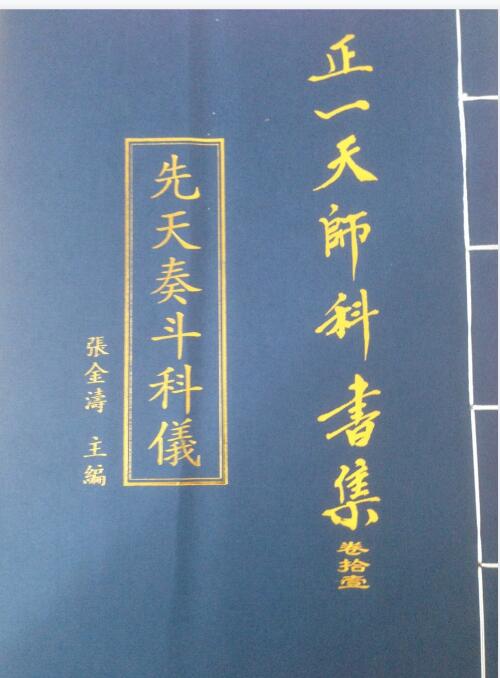 正一天師科書集
卷拾壹
先天奏斗科儀
張金濤 主編